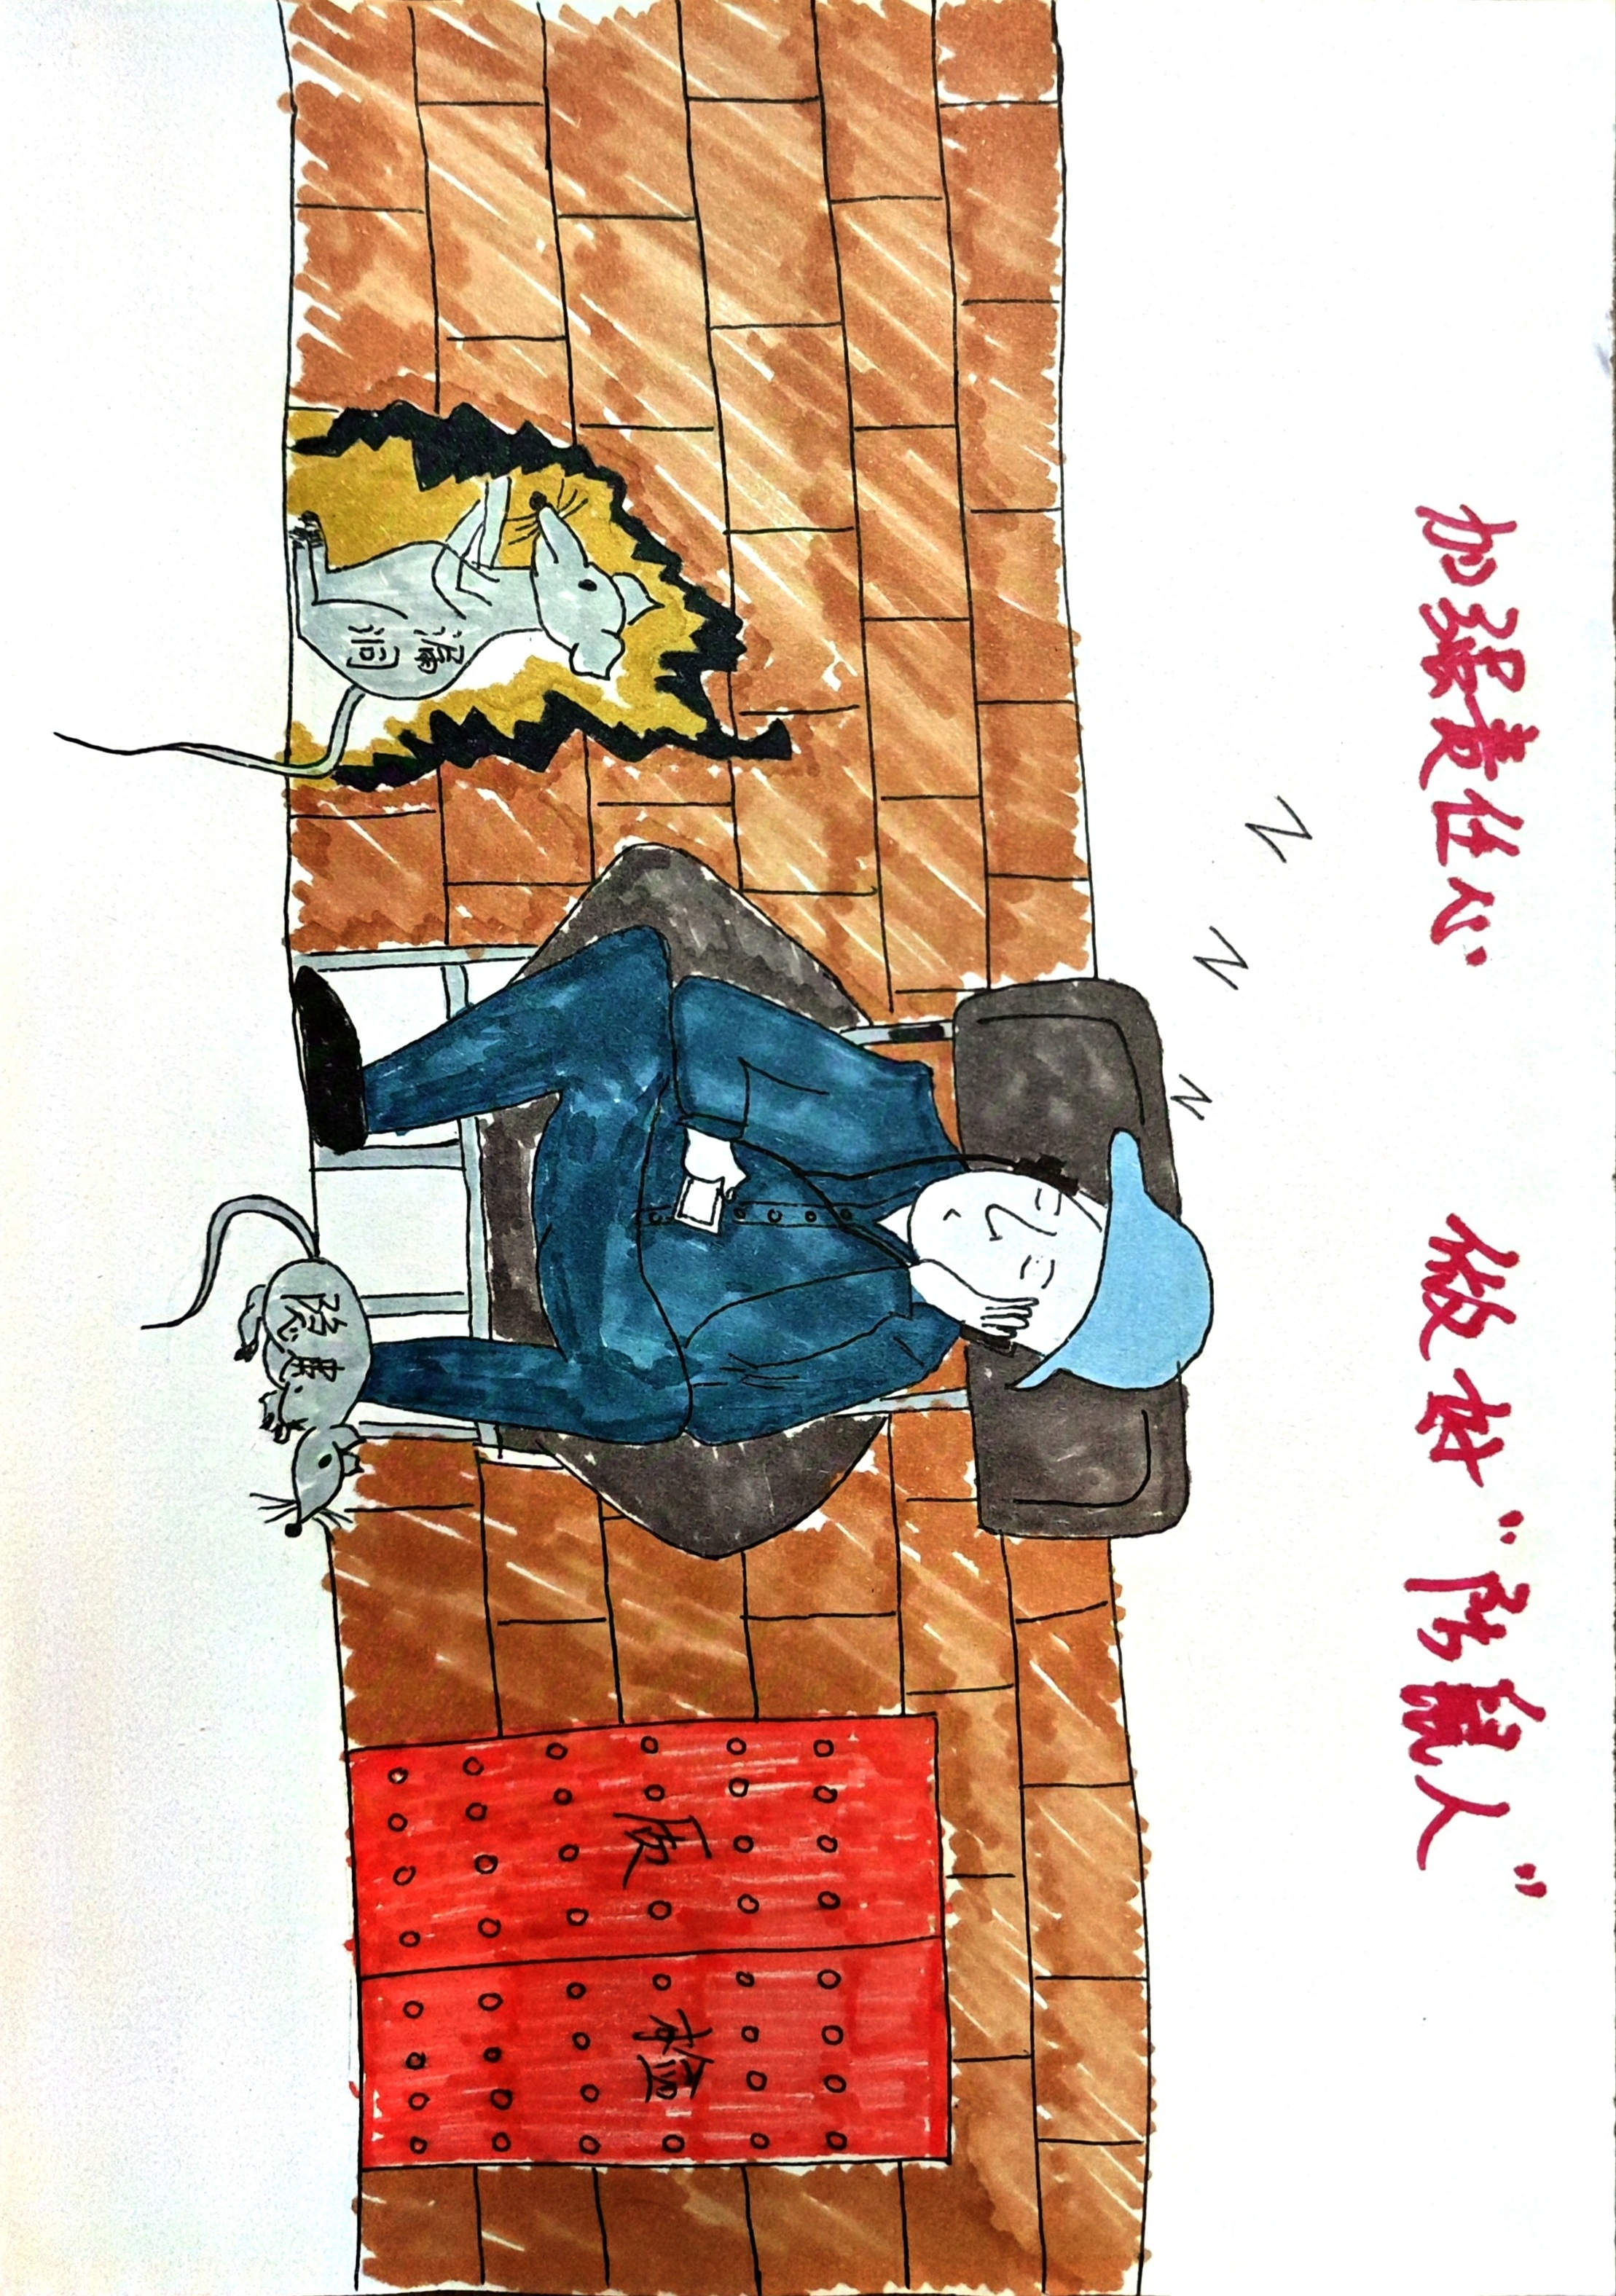 加强责任心 做好“防鼠人”
Z Z Z
漏
洞
隐患
质检